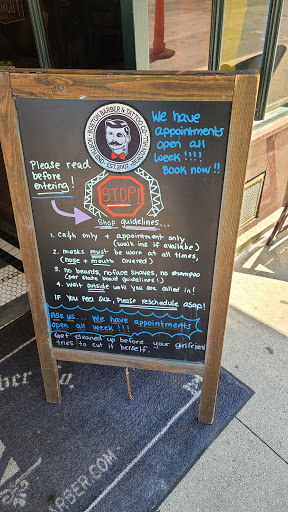 BOSTON BARBER & TATTOO CO.
We have
appointments
open all
week !!!!
Book now !!
Please read
before
entering !
STOP!
Shop guidelines...
1. Cash only + appointment only
(walk ins if available)
2. masks must be worn at all times,
(nose + mouth covered)
3. no beards, no face shaves, no shampoo
(per state board guidelines!)
4. wait outside until you are called in!
IF you Feel Sick, Please reschedule asap!
Ask us... We have appointments
open all week !!!
Get cleaned up before your girlfriend
tries to cut it herself.